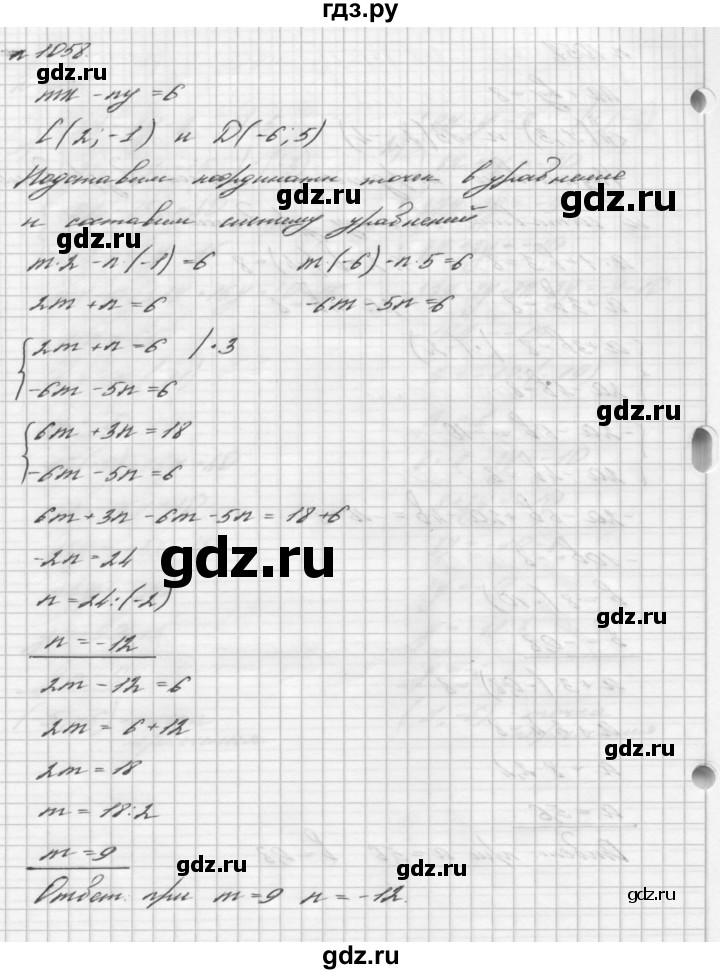 гдз.ру
n 1058.
gdz.ru
mx - ny = 6
C(2; -1) и D(-6; 5)
Подставим координаты точек в уравнение
gdz.ru
gdz.ru
и составим систему уравнений
gdz.ru
m·2 - n·(-1) = 6 m·(-6) - n·5 = 6
2m + n = 6 -6m - 5n = 6
{ 2m + n = 6 /·3
-6m - 5n = 6
gdz.ru
gdz.ru
{ 6m + 3n = 18
-6m - 5n = 6
6m + 3n - 6m - 5n = 18 + 6
-2n = 24
gdz.ru
n = 24 : (-2)
gdz.ru
n = -12
2m - 12 = 6
2m = 6 + 12
gdz.ru
2m = 18
m = 18 : 2
m = 9
gdz.ru
gdz.ru
Ответ: при m = 9 n = -12.
gdz.ru
gdz.ru